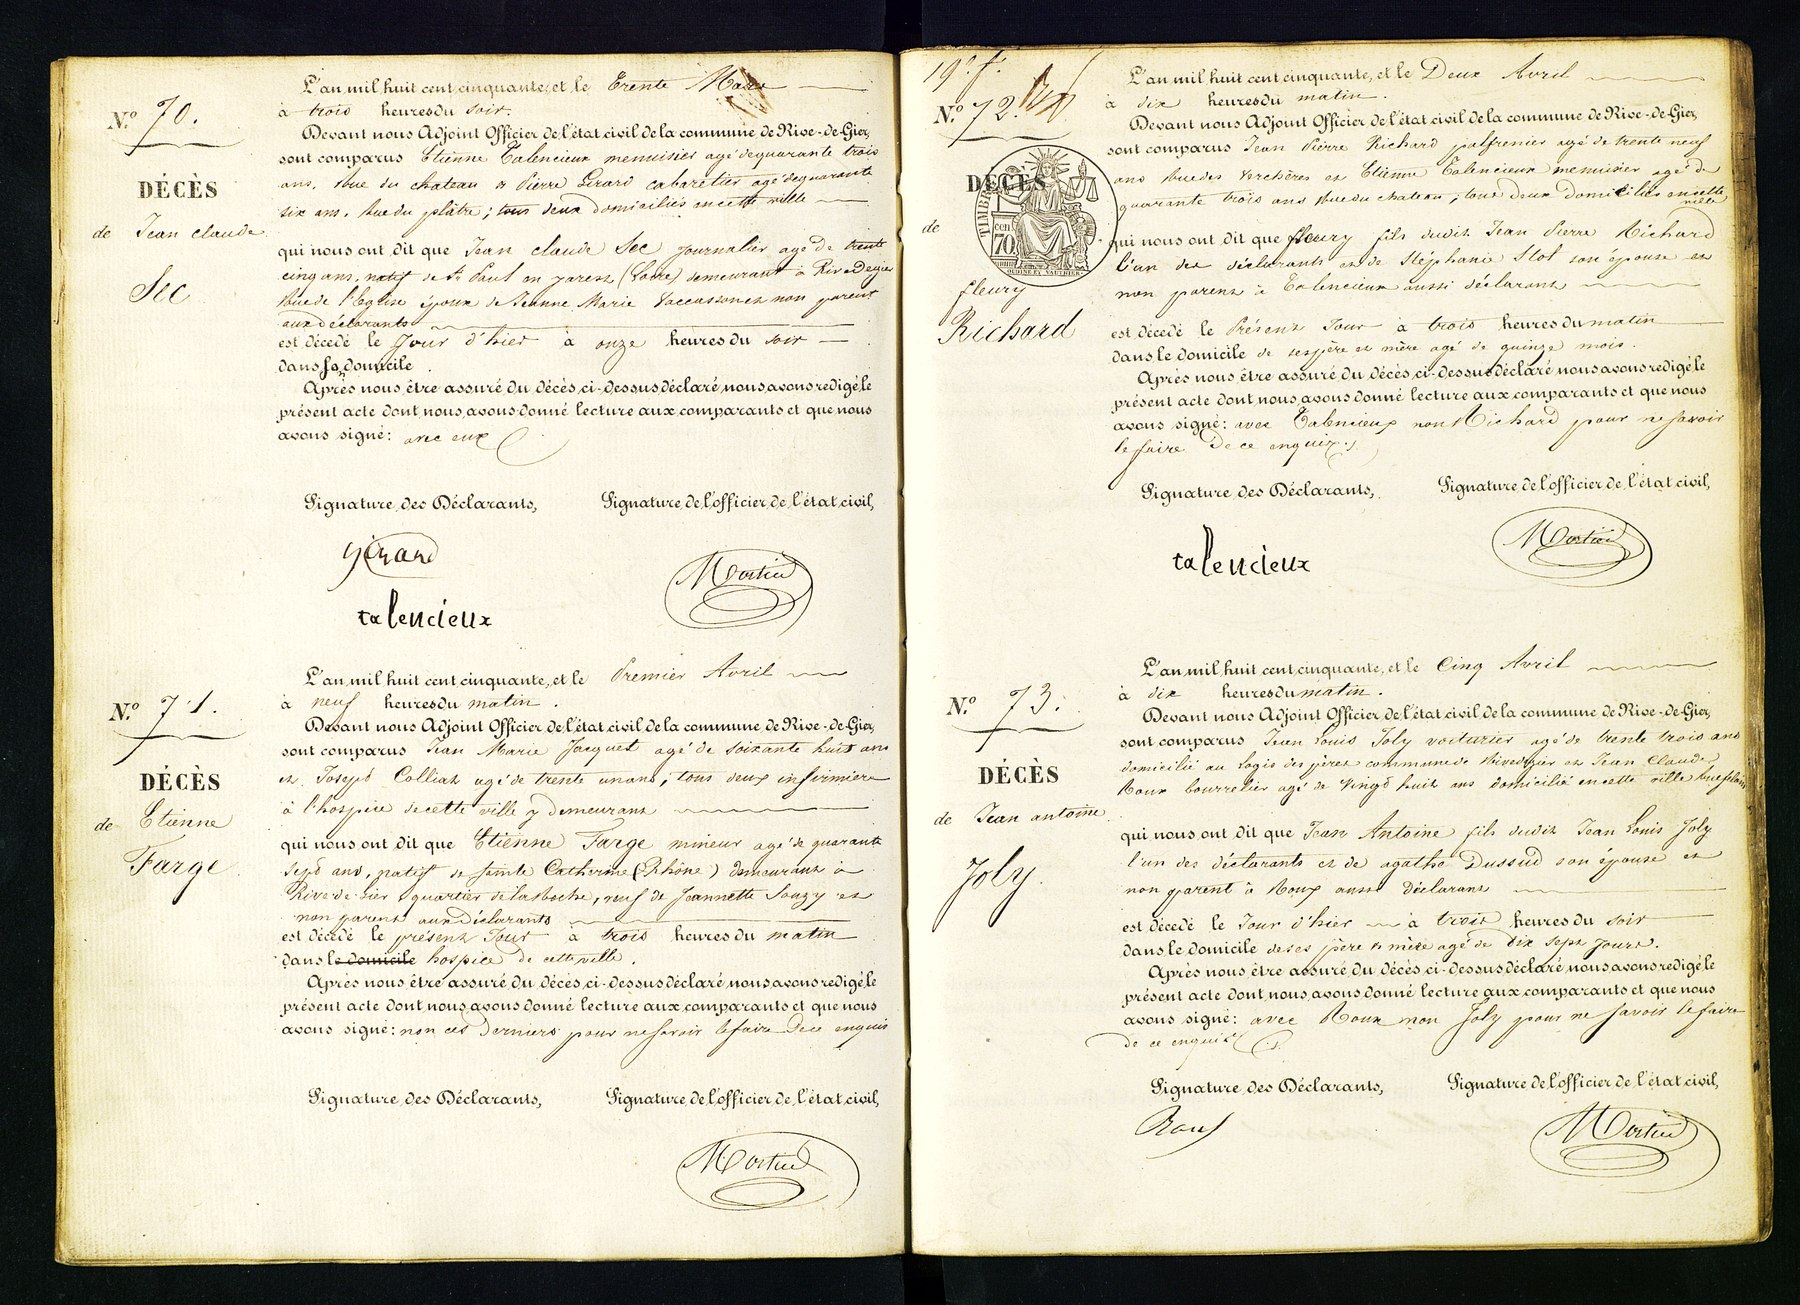 N.º 70.
DÉCÈS
de Jean claude
Sec
L'an mil huit cent cinquante, et le Trente Mars
à trois heures du soir.
Devant nous Adjoint Officier de l'état civil de la commune de Rive-de-Gier,
sont comparus Etienne Talencieux menuisier agé de quarante trois
ans, Rue du chateau & Pierre Girard cabaretier agé de quarante
six ans, Rue du plâtre; tous deux domiciliés en cette ville
qui nous ont dit que Jean claude Sec journalier agé de trente
cinq ans, natif de St Paul en jarest (Loire) demeurant à Rive de gier
Rue de l'Eglise époux de Jeanne Marie non parent
aux déclarants
est décédé le Jour d'hier à onze heures du soir
dans so domicile.
Après nous être assuré du décès ci-dessus déclaré nous avons redigé le
présent acte dont nous avons donné lecture aux comparants et que nous
avons signé: avec eux
Signature des Déclarants, Signature de l'officier de l'état civil,
girard
Mortier
talencieux
N.º 71.
DÉCÈS
de Etienne
Farge
L'an mil huit cent cinquante, et le Premier Avril
à neuf heures du matin.
Devant nous Adjoint Officier de l'état civil de la commune de Rive-de-Gier,
sont comparus Jean Marie Jacquet agé de soixante huit ans
et Joseph Colliat agé de trente un ans; tous deux infirmiers
à l'hospice de cette ville y demeurant
qui nous ont dit que Etienne Farge mineur agé de quarante
sept ans, natif de sainte Catherine (Rhône) demeurant à
Rive de Gier quartier de , veuf de Jeannette Souzy et
non parent aux déclarants
est décédé le présent Jour à trois heures du matin
dans le domicile hospice de cette ville.
Après nous être assuré du décès ci-dessus déclaré nous avons redigé le
présent acte dont nous avons donné lecture aux comparants et que nous
avons signé: non ces derniers pour ne savoir le faire de ce enquis
Signature des Déclarants, Signature de l'officier de l'état civil,
Mortier
19e f.
N.º 72.
DÉCÈS
TIMBRE
70 cen
OUDINE ET VAUTHIER
de
fleury
Richard
L'an mil huit cent cinquante, et le Deux Avril
à dix heures du matin.
Devant nous Adjoint Officier de l'état civil de la commune de Rive-de-Gier,
sont comparus Jean Pierre Richard palfrenier agé de trente neuf
ans Rue des Verchères et Etienne Talencieux menuisier agé de
quarante trois ans Rue du chateau; tous deux domiciliés en cette
ville
qui nous ont dit que fleury fils dudit Jean Pierre Richard
l'un des déclarants et de Stéphanie Slot son épouse et
non parent à Talencieux aussi déclarant
est décédé le Présent Jour à trois heures du matin
dans le domicile de ses père et mère agé de quinze mois.
Après nous être assuré du décès ci-dessus déclaré nous avons redigé le
présent acte dont nous avons donné lecture aux comparants et que nous
avons signé: avec Talencieux non Richard pour ne savoir
le faire de ce enquis.
Signature des Déclarants, Signature de l'officier de l'état civil,
Mortier
talencieux
N.º 73.
DÉCÈS
de Jean antoine
Joly
L'an mil huit cent cinquante, et le Cinq Avril
à dix heures du matin.
Devant nous Adjoint Officier de l'état civil de la commune de Rive-de-Gier,
sont comparus Jean Louis Joly voiturier agé de trente trois ans
domicilié au Logis des pères commune de Rivedegier et Jean Claude
Roux bourrelier agé de Vingt huit ans domicilié en cette ville
qui nous ont dit que Jean Antoine fils dudit Jean Louis Joly
l'un des déclarants et de agathe Dussud son épouse et
non parent à Roux aussi Déclarant
est décédé le Jour d'hier à trois heures du soir
dans le domicile de ses père & mère agé de dix sept jours.
Après nous être assuré du décès ci-dessus déclaré nous avons redigé le
présent acte dont nous avons donné lecture aux comparants et que nous
avons signé: avec Roux non Joly pour ne savoir le faire
de ce enquis
Signature des Déclarants, Signature de l'officier de l'état civil,
Roux
Mortier